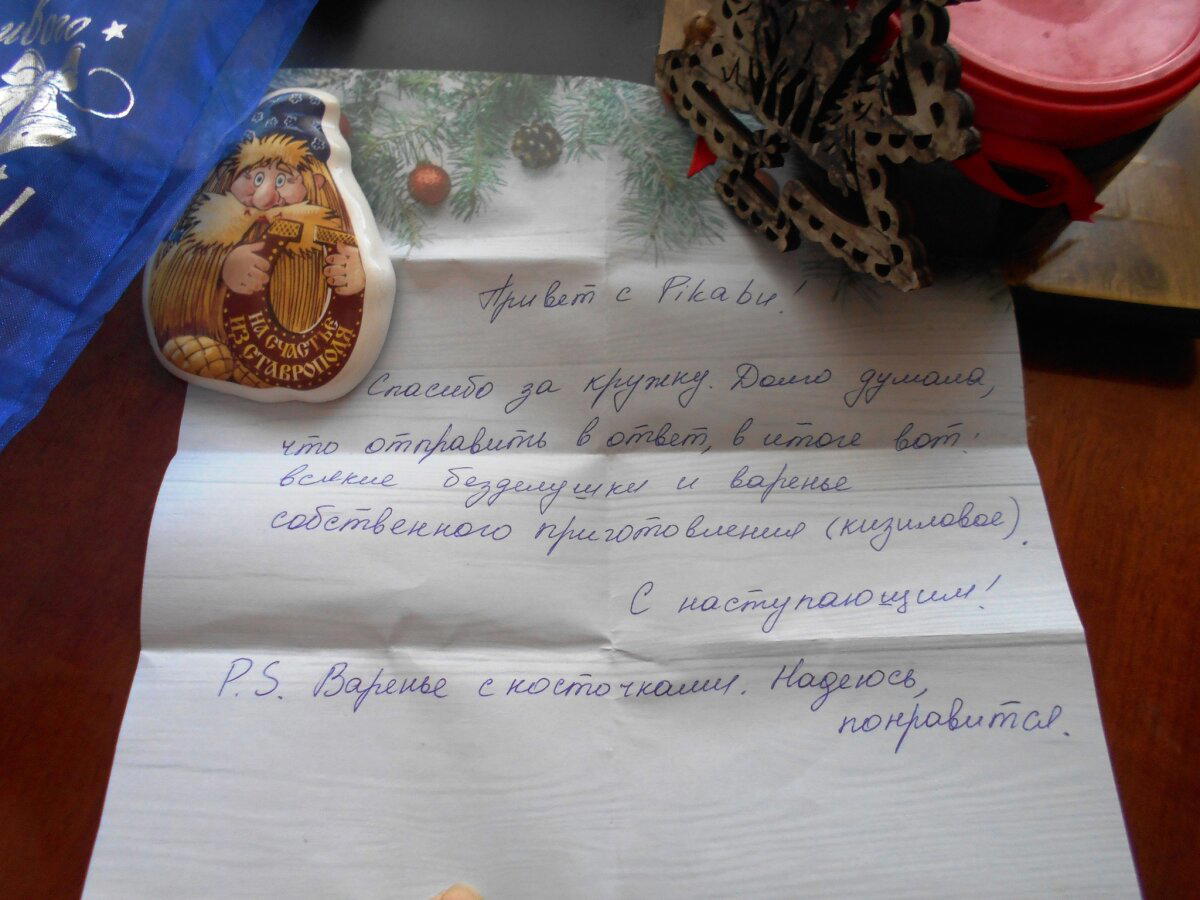 НА СЧАСТЬЕ
ИЗ СТАВРОПОЛЯ
Привет с Pikabu!
Спасибо за кружку. Долго думала,
что отправить в ответ, в итоге вот:
всякие безделушки и варенье
собственного приготовления (кизиловое).
С наступающим!
P.S. Варенье с косточками. Надеюсь,
понравится.